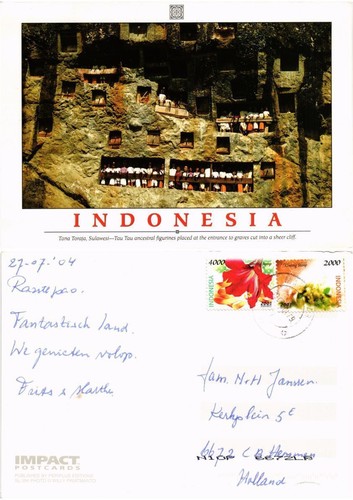 INDONESIA
Tana Toraja, Sulawesi—Tau Tau ancestral figurines placed at the entrance to graves cut into a sheer cliff.
27-07-'04
Rantepao.
Fantastisch land.
We genieten volop.
Frits & Marthe
4000
INDONESIA
2000
INDONESIA
Fam. M.H Janssen
Kerkplein 5E
6672
Holland
IMPACT
POSTCARDS